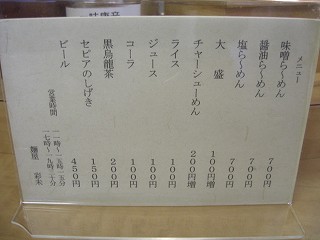 メニュー
味噌ら〜めん 700円
醤油ら〜めん 700円
塩ら〜めん 700円
大盛 100円増
チャーシューめん 200円増
ライス 100円
ジュース 100円
コーラ 100円
黒烏龍茶 200円
セピアのしげき 150円
ビール 450円
営業時間
十一時〜十五時十五分
十七時〜十九時三十分
麺屋 彩未